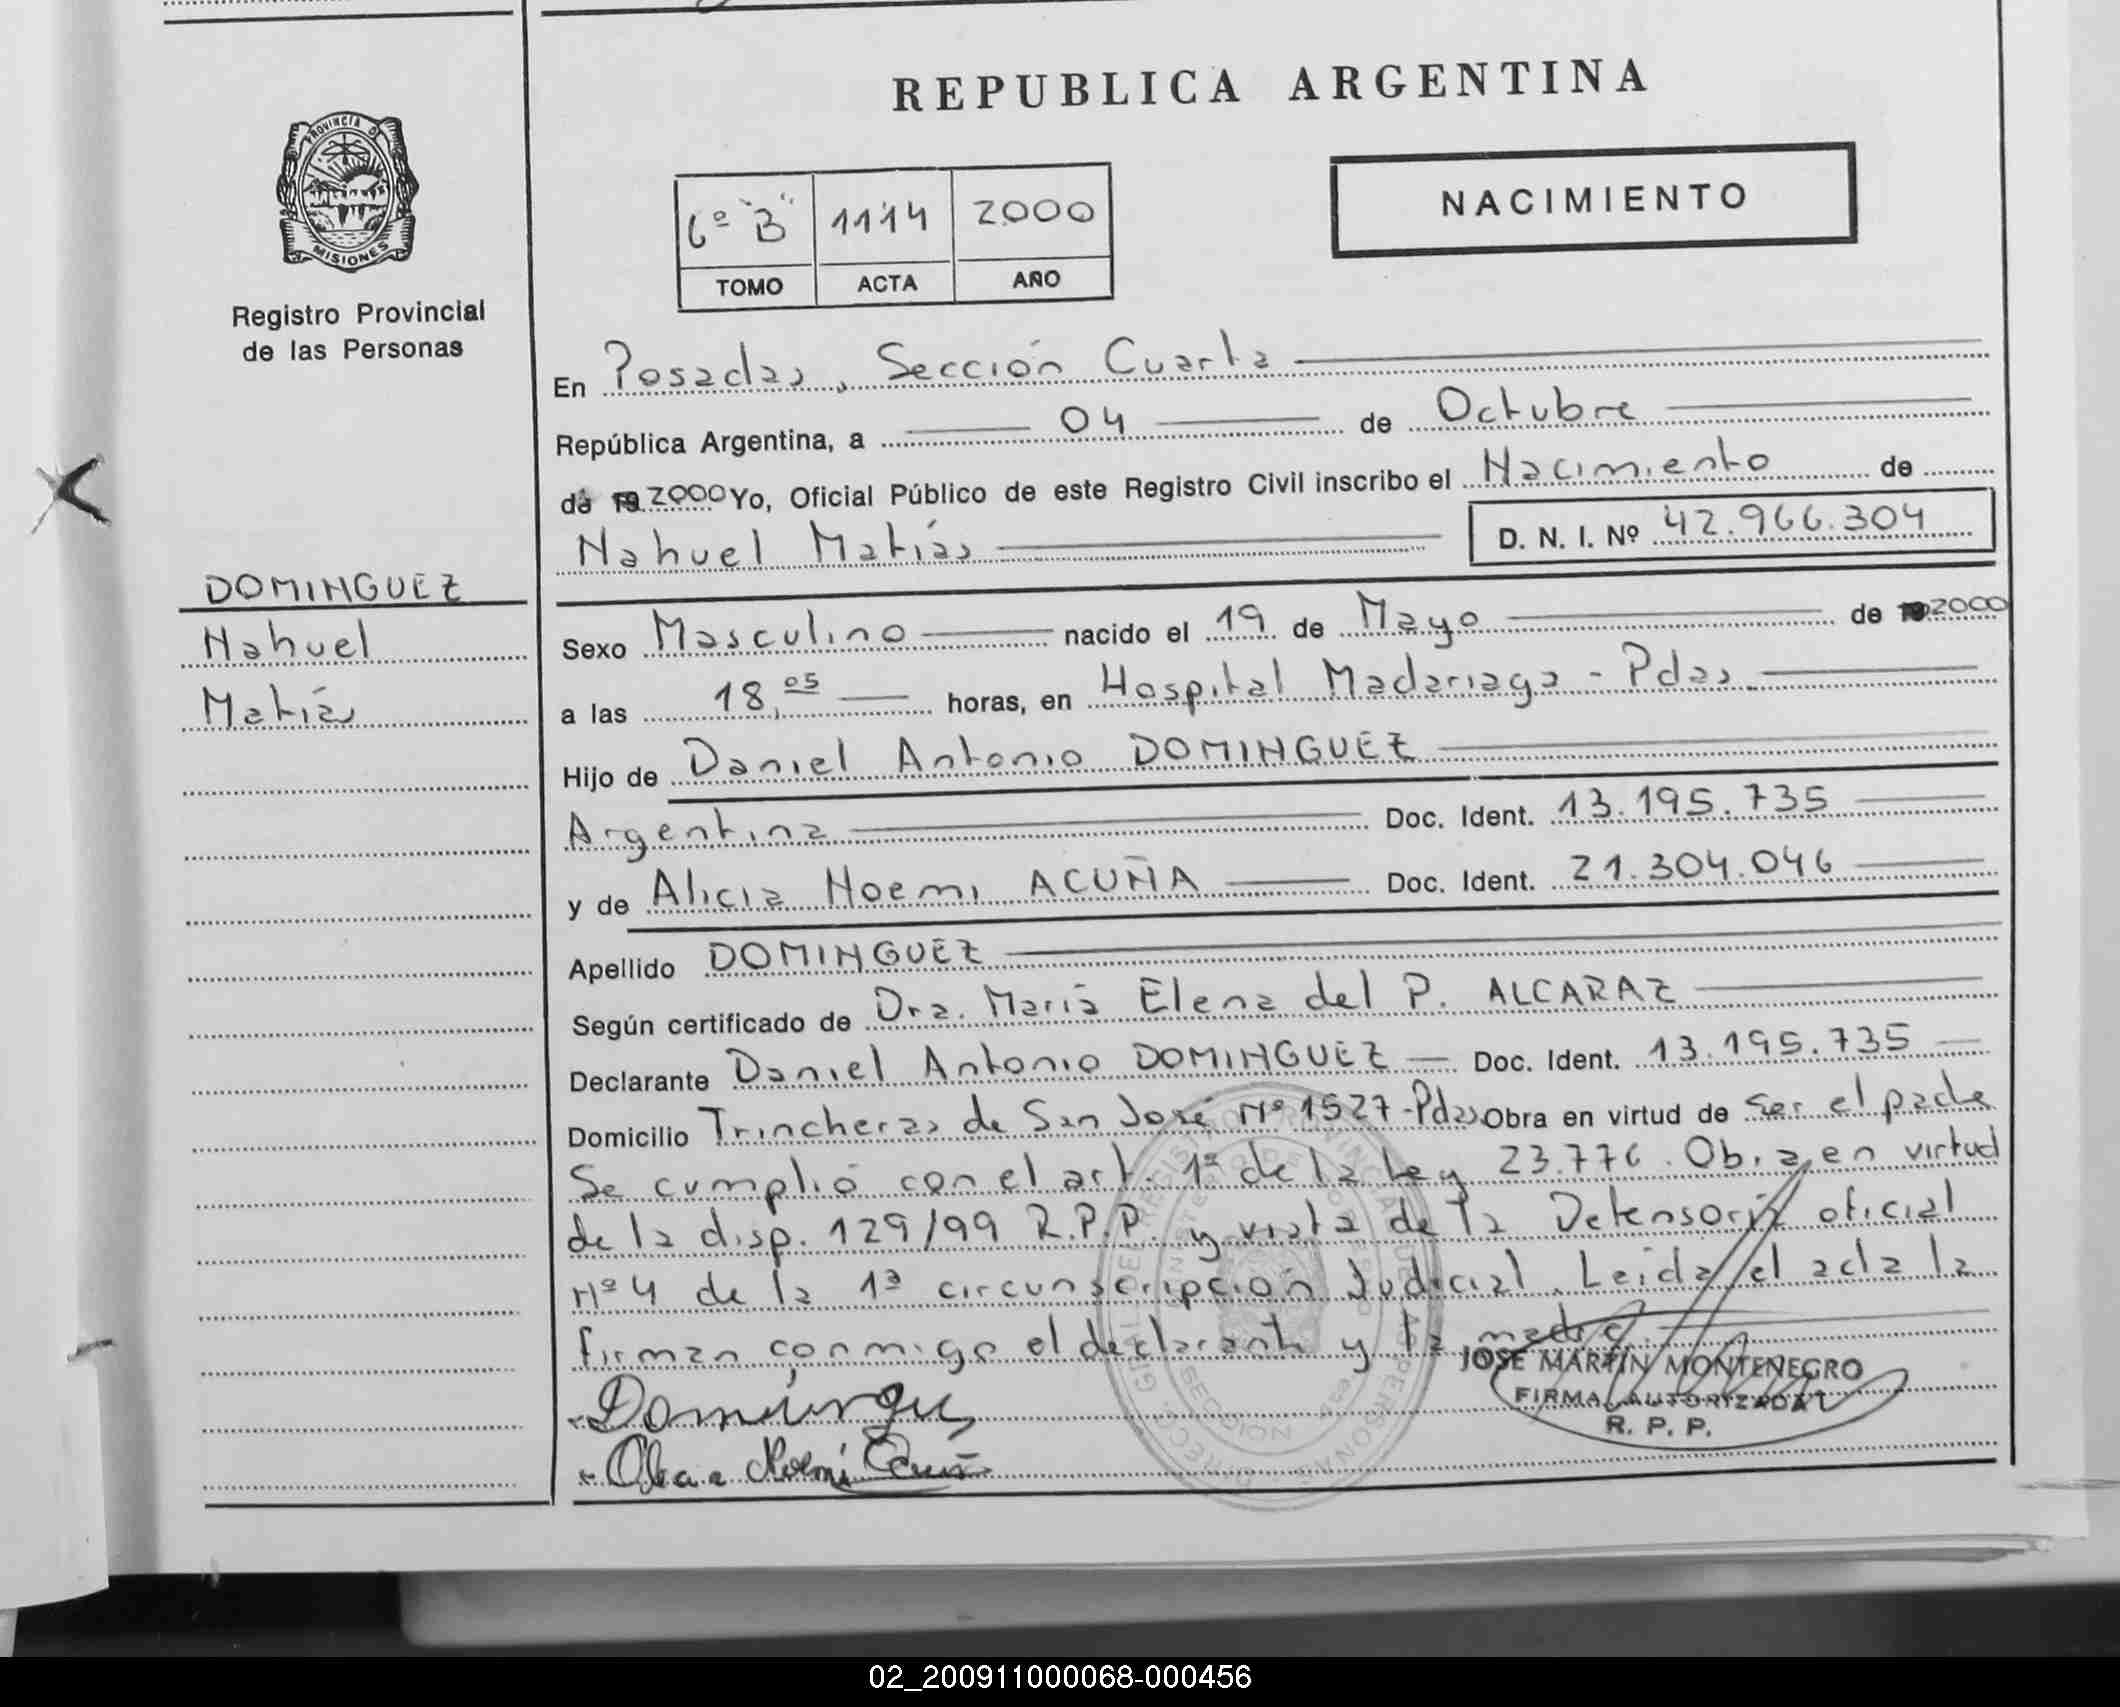 REPUBLICA ARGENTINA
PROVINCIA D
MISIONES
Registro Provincial
de las Personas
6º "B" 1114 2000
TOMO ACTA AÑO
NACIMIENTO
En Posadas, Sección Cuarta
República Argentina, a 04 de Octubre
de 19 2000 Yo, Oficial Público de este Registro Civil inscribo el Nacimiento de
Nahuel Matías D. N. I. Nº 42.966.304
DOMINGUEZ
Nahuel
Matías
Sexo Masculino nacido el 19 de Mayo de 19 2000
a las 18,05 horas, en Hospital Madariaga - Pdas.
Hijo de Daniel Antonio DOMINGUEZ
Argentina Doc. Ident. 13.195.735
y de Alicia Noemi ACUÑA Doc. Ident. 21.304.046
Apellido DOMINGUEZ
Según certificado de Dra. María Elena del P. ALCARAZ
Declarante Daniel Antonio DOMINGUEZ Doc. Ident. 13.195.735
Domicilio Trincheras de San José Nº 1527-Pdas Obra en virtud de ser el padre
Se cumplió con el art. 1º de la Ley 23.776. Obra en virtud
de la disp. 129/99 R.P.P. y vista de la Defensoría oficial
Nº 4 de la 1ª circunscripción Judicial. Leida el acta la
firman conmigo el declarante y la madre.
JOSE MARTIN MONTENEGRO
FIRMA AUTORIZADA
R. P. P.
02_200911000068-000456